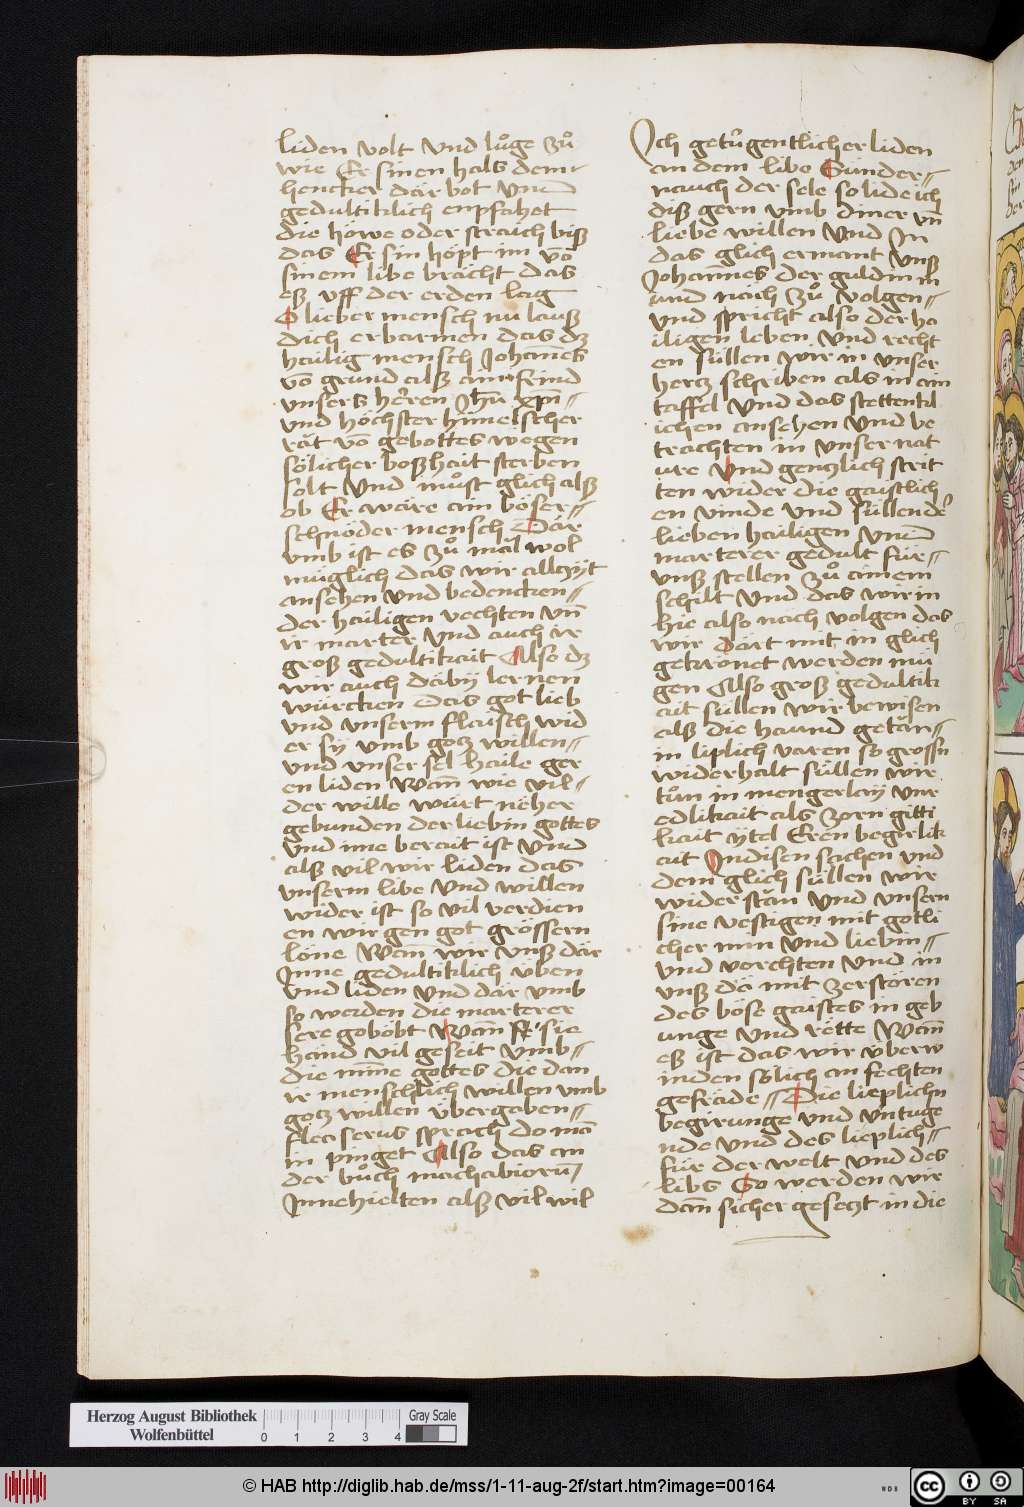 liden volt vnd lůge zů
wie Er sinen hals dem
hencker där bot vnd
gedultiklich enpfahet
die höwe oder straich biß
das Er sin höpt im võ
sinem libe brächt das
eß vff der erden lag
O lieber mensch nu lauß
dich erbarmen das dz
hailig mensch Johañes
võ grund alß ain frind
vnsers heren Jhũ xpĩ
vnd höchster himelscher
rät võ gebottes wegen
sölicher boßhait sterben
solt Vnd můst glich alß
ob Er wäre ain böser
schnöder mensch Där
vmb ist es zů mäl wol
müglich das wir allzÿt
ansehen vnd bedencken
der hailigen vechten vñ
ir marter vnd auch ir
groß gedultikait Also dz
wir auch däbÿ lernen
würcken Das got lieb
vnd vnserm flaisch wid
er sÿ vmb gotz willen
vnd vnser sel haile ger
en liden Wañ wie vil
der wille würt näher
gebunden der liebin gottes
vnd ime berait ist vnd
alß vil wir liden das
vnserm libe vnd willen
wider ist so vil verdien
en wir gen got grössern
löne Wañ wir vnß där
Jnne gedultiklich üben
vnd liden vnd där vmb
so werden die marterer
sere goböbt Wañ sie
hand vil geseit vmb
die mine gottes die dan
ir menschlich willen vmb
gotz willen übergaben
flea serus sprach do mã
in pinget Also das an
der bůch machabiorũ
Jnnehielten alß vil wil
Jch getůgentlicher liden
an dem libe Sünder
nauch der sele so lide ich
diß gern vmb diner vñ
liebe willen Vnd Jn
das glich ermant vnß
Johannes der guldin m
und näch zů volgen
vnd spricht also der ha
iligen leben vnd recht
en süllen wir in vnser
hertz schriben als in ain
taffel vnd das stettenkl
ichen ansehen vnd be
trachten in vnser nat
ure Vnd gentzlich strit
ten wider die gaistlich
en vinde vnd süllen de
lieben hailigen vnd
marterer gedult für
vnß stellen zů ainem
schilt Vnd das wir in
hie also nach volgen das
wir Dört mit in glich
gekrönet werden mü
gen Also groß gedultik
ait süllen wir bewisen
alß die haund getän
in liplich varen so grossn
widerhalt süllen wir
tůn in mengerlaÿ vnr
edlikait als zorn gitti
kait ÿtel Eren begirlik
ait Jndisen sachen vnd
dem glich süllen wir
wider stän Vnd vnsern
sine vestigen mit gotli
cher min vnd liebin
vnd vorchten vnd in
vnß dä mit zerstören
des böse gaistes in geb
unge vnd rette Wañ
eß ist das wir überw
inden sölich an fechten
gefräde Die lieplichn
begirunge vnd vntuge
nde Vnd des lieplich
für der welt vnd des
libs So werden wir
dañ sicher gesetzt in die
Herzog August Bibliothek
Wolfenbüttel
0 1 2 3 4
Gray Scale
© HAB http://diglib.hab.de/mss/1-11-aug-2f/start.htm?image=00164
WDB
cc BY SA